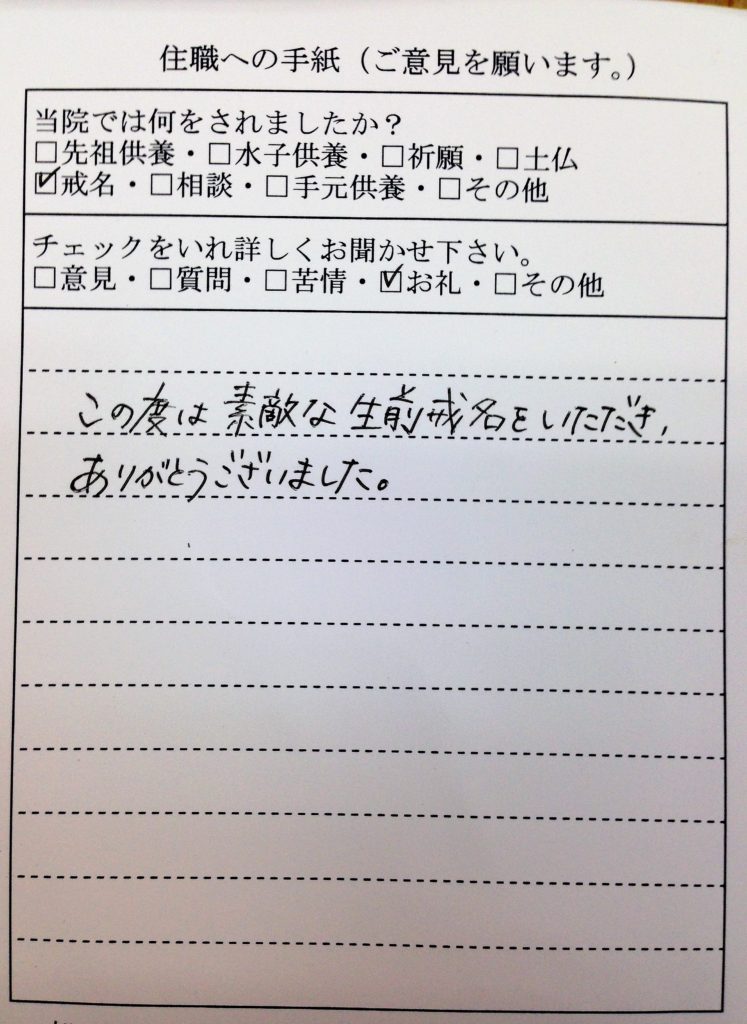 住職への手紙（ご意見を願います。）
当院では何をされましたか？
□先祖供養・□水子供養・□祈願・□土仏
☑戒名・□相談・□手元供養・□その他
チェックをいれ詳しくお聞かせ下さい。
□意見・□質問・□苦情・☑お礼・□その他
この度は素敵な生前戒名をいただき、
ありがとうございました。